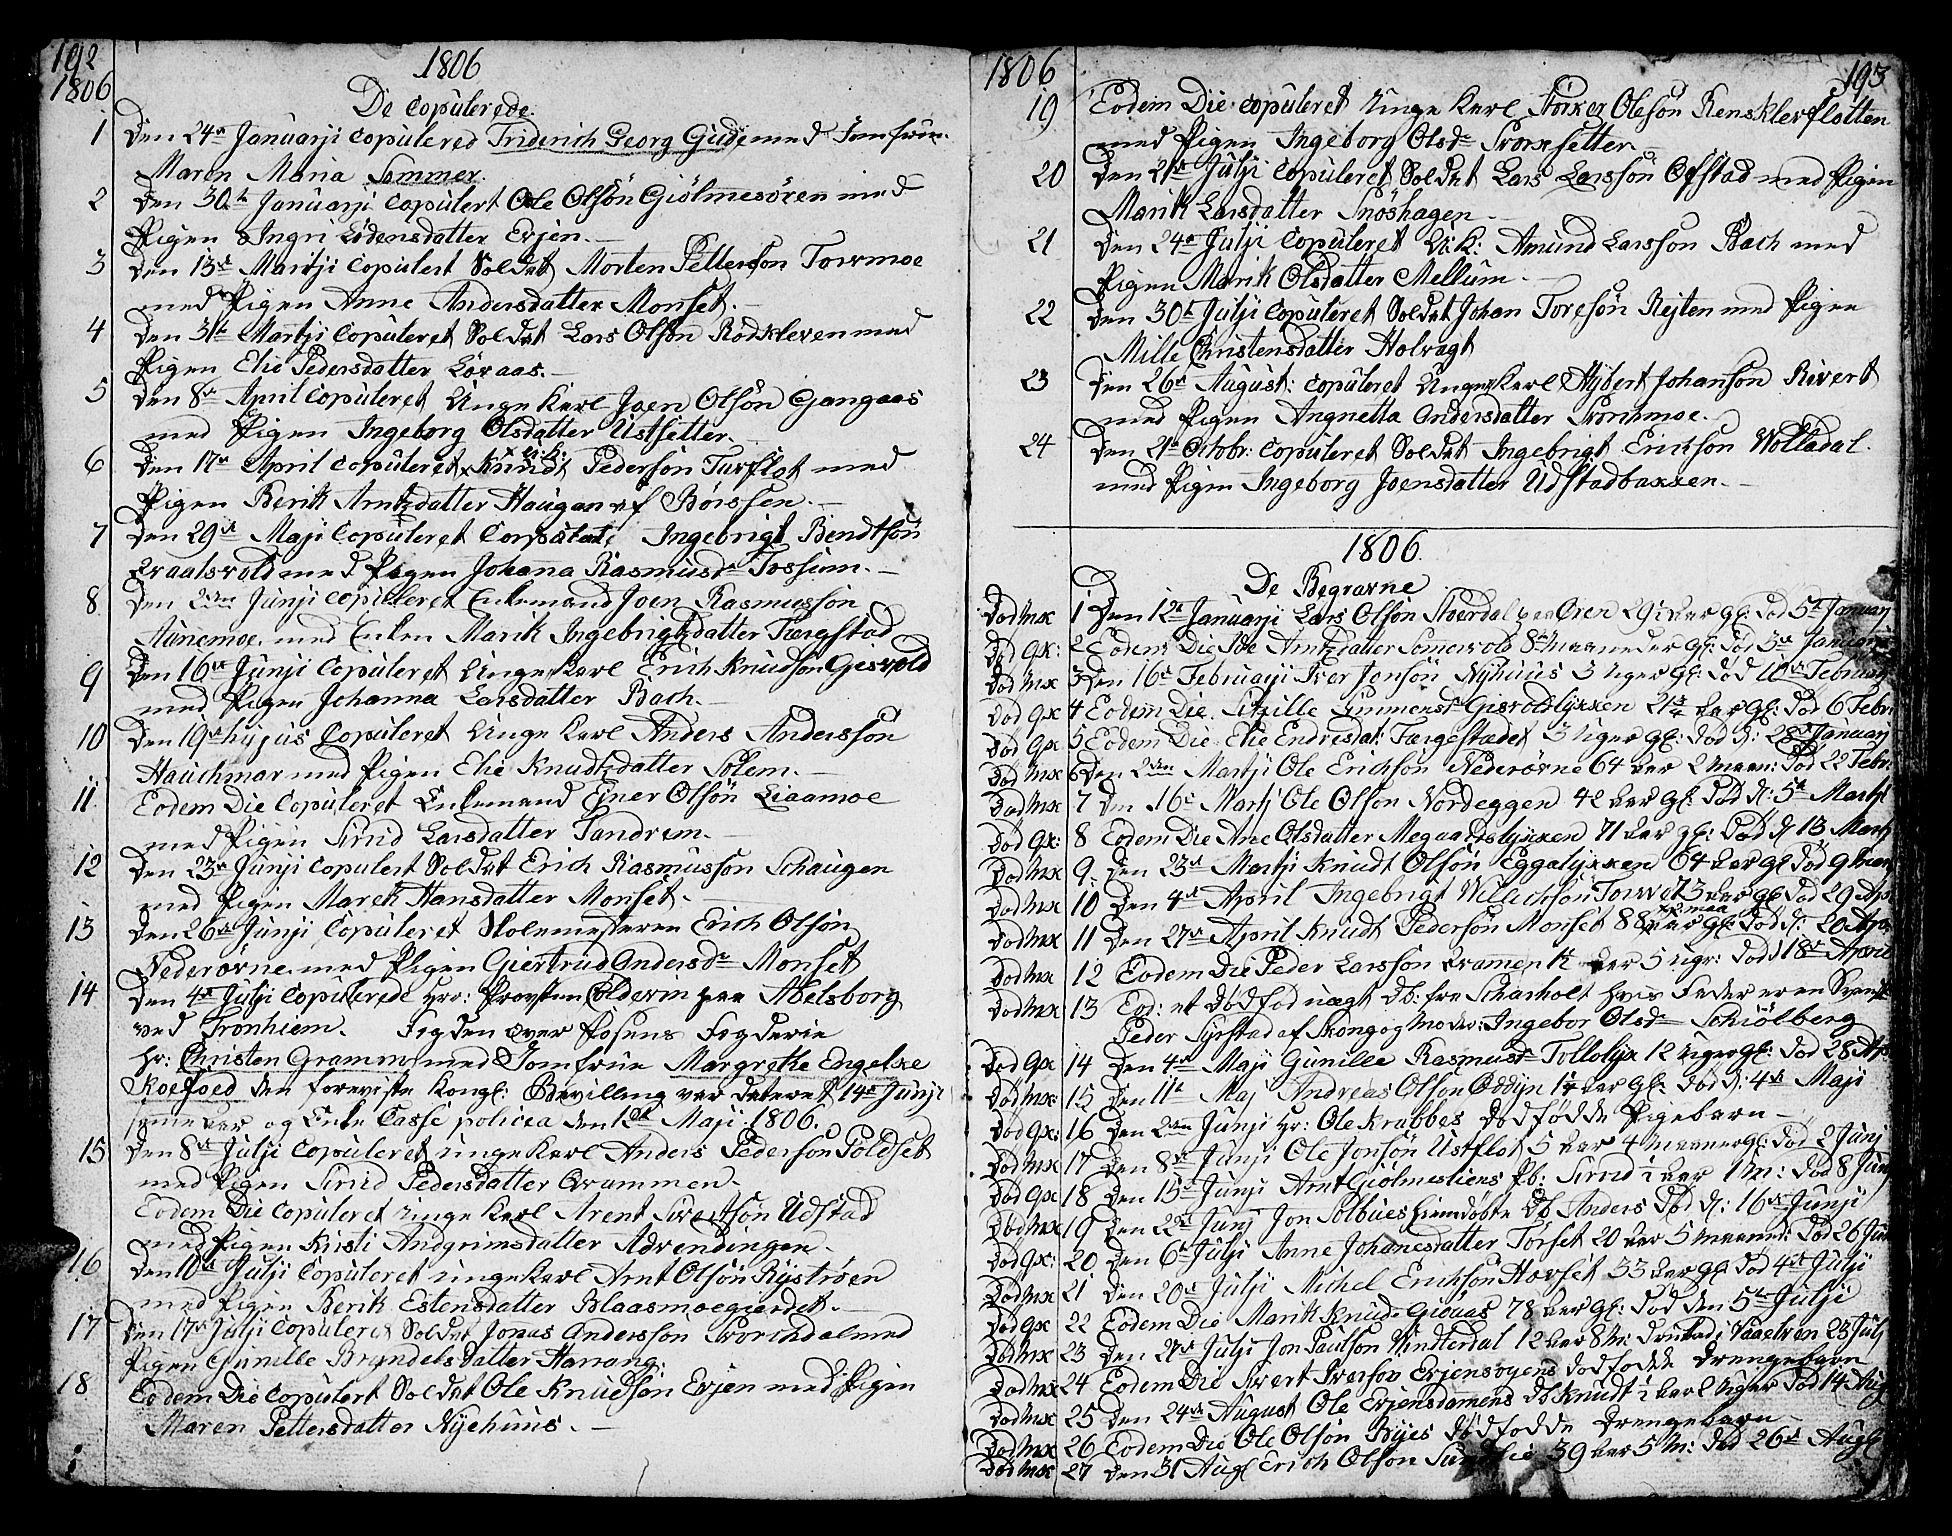 192
1806
1806
De Copulerede.
1 Den 24de Januarji Copulered Friderich Georg Gude med Jomfrue
Maren Maria Sommer.
2 Den 30te Januarji Copulert Ole Olsön Giölmesören med
Pigen Ingri Lodensdatter Evjen.
3 Den 13de Martji Copulert Soldat Morten Pettersson Torvmoe
med Pigen Anne Andersdatter Monset.
4 Den 31te Martji Copuleret Soldat Lars Olsön Rödkleven med
Pigen Elie Pedersdatter Löraas.
5 Den 8de April Copuleret Unge Karl Joen Olsön Gangaas
med Pigen Ingeborg Olsdatter Ustsetter.
6 Den 17de April Copuleret U:K: Knudt Pedersön Turflot med
Pigen Berik Arntzdatter Haugan af Börssen.
7 Den 29de Maji Copuleret Ingebrigt Bendtsön
Qvaalsvold med Pigen Johana Rasmusdr Fossum.
8 Den 2den Junji Copuleret Enkemand Joen Rasmussön
Aunemoe med Enken Marik Ingebrigtzdatter Færgstad
9 Den 16de Junji Copuleret Unge Karl Erich Knudsön Gisvold
med Pigen Johanna Larsdatter Bach.
10 Den 19de hujus Copuleret Unge Karl Anders Andersson
Hauchmar med Pigen Elie Knudtzdatter Solem.
11 Eodem Die Copuleret Enkemand Ejner Olsön Liaamoe
med Pigen Sirud Larsdatter Tandrem.
12 Den 23de Junji Copulert Soldat Erich Rasmussön Schaugen
med Pigen Marek Hansdatter Monset.
13 Den 26de Junji Copuleret Skolemesteren Erich Olsön
Nederørne med Pigen Giertrud Andersdr Monset
14 Den 4de Julji Copulerede Hrr: Provsten Colderin paa Abelsborg
ved Tronhiem. Fogden over Fosens Fogderie
Hr: Christen Gramm med Jomfrue Margrethe Engelke
Koefoed den foreviste Kongl: Bevilling var dateret 14de Junji
samme aar og Enke Casse policea den 12de Maji 1806.
15 Den 8de Julji Copuleret unge Karl Anders Pederson Foldset
med Pigen Sirud Pedersdatter Drammen.
Eodem Die Copuleret unge Karl Arent Sivertsön Udstad
med Pigen Kisti Andgrimsdatter Advendingen.
16 Den 10de Julji Copuleret unge Karl Arnt Olsön Ryströen
med Pigen Berik Estensdatter Blaasmoegierdet.
17 Den 17de Julji Copuleret Soldat Jonas Anderssön Svorchdal med
Pigen Gunille Bryndelsdatter Harrang.
18 Eodem Die Copulert Soldat Ole Knudsön Evjen med Pigen
Maren Pettersdatter Nyehuus.
1806
193
19 Eodem Die copuleret Unge Karl Störker Olesön Rensklevflotten
med Pigen Ingeborg Olsdr Svorksetter
20 Den 21de Julji Copuleret Soldat Lars Larssön Ofstad med Pigen
Marik Larsdatter Snöshagen
21 Den 24de Julji Copuleret U:K: Amund Larsson Bach med
Pigen Marik Olsdatter Mellum
22 Den 30te Julji Copuleret Soldat Johan Toresön Rejten med Pigen
Mille Christensdatter Holvagt
23 Den 26de August: Copuleret Unge Karl Hybert Johansön Rivert
med Pigen Angnetta Andersdatter Svorchmoe.
24 Den 21de Octobr: Copuleret Soldat Ingebrigt Ericksön Wolladal
med Pigen Ingeborg Joensdatter Udstadbakken.
1806
De Begravne
Död Mx 1 Den 12te Januarji Lars Olsön Stverdal paa Ören 29 1/2 aar gl: död 5te Januarj
Död Qx: 2 Eodem Die Ide Arntzdatter Somervold 8te maaneder gl: död 3de Januarji
Död Mx 3 Den 16de Februarji Iver Jonsön Nyhuus 3 uger gl: död 10de Februarj
Död Qx 4 Eodem Die Sitzille Simmensdr Gisvoldlykken 21 3/4 aar gl: död 6 Febr:
Död Qx 5 Eodem Die Elie Endresdat: Færgestadet 3 uger gl: död d: 28de Januarj
Död Mx 6 Den 2den Martji Ole Erichson Nederørne 64 aar 2 maan: död 22 Febr:
Död Mx 7 Den 16de Martj Ole Olson Nordeggen 42 aar gl: död d: 5te Martji
Död Qx: 8 Eodem Die Ane Olsdatter Megaardslykken 71 aar gl: död d: 13 Martj
Död Mx 9 Den 23de Martji Knudt Olsön Eggalykken 64 aar gl: död 9 Mar
Död Mx 10 Den 4de April Ingebrigt Willichsön Torvet 73 aar gl: död 29
Död Mx 11 Den 27de April Knudt Pedersön Monset 88 aar gl: död d: 20 Apr
Död Mx 12 Eodem Die Peder Larsson Kramen 1/2 aar 5 uger: död 18de April
Död Mx 13 Eod: et dödfød uægt Db: fra Scharholt hvis Fader er en Svensk
Peder Syrstad af Skong og Moder: Ingebor Olsdr Schiölberg
Död Qx 14 Den 4de Maji Gunille Rasmusdr Tollolyk 12 uger gl: död 28 Apr
Död Mx: 15 Den 11te Maj Andreas Olson Oddyn 1/4 aar gl: död d: 4de Maji
Död Qx: 16 Den 2den Junji Hr: Ole Krabbes dödfødde Pigebarn
Död Mx 17 Den 8de Junji Ole Jonsön Ustflot 5 aar 4 maaner gl: död 2 Junj
Död Qx 18 Den 15de Junji Arnt Giölmesliens Pb: Sirud 1 aar 1 M: död 8 Junj
Död Mx 19 Den 22de Junj Jon Solbues hiemdöbte Db Anders död d: 16de Junji
Död Qx: 20 Den 6te Julji Anne Johanesdatter Torset 20 aar 5 maaned: död 26 Jun
Död Mx 21 Den 20de Julji Michel Erichsön Hovset 33 aar gl död 4de Julji
Död Qx 22 Eodem Die Marik Knudsdr Giöaas 78 aar gl: död den 5te Julji
Död Mx 23 Den 27de Julji Jon Paulson Windterdal 12 aar 8 M: druknet i Vaaelven 23 Julj
Död Mx 24 Eodem Die Sivert Iversøn Evjensøyens dødfødde drengebarn
Död Mx 25 Den 24de August Ole Evjensdamens Db Knudt 1 aar 1 uger död 14 Aug
Död Mx 26 Eodem Die Ole Olsön Byes dødfødde drengebarn
Död Mx 27 Den 31 Augl Erich Olsön Sundlie 39 aar 5 M: död 26de Augl